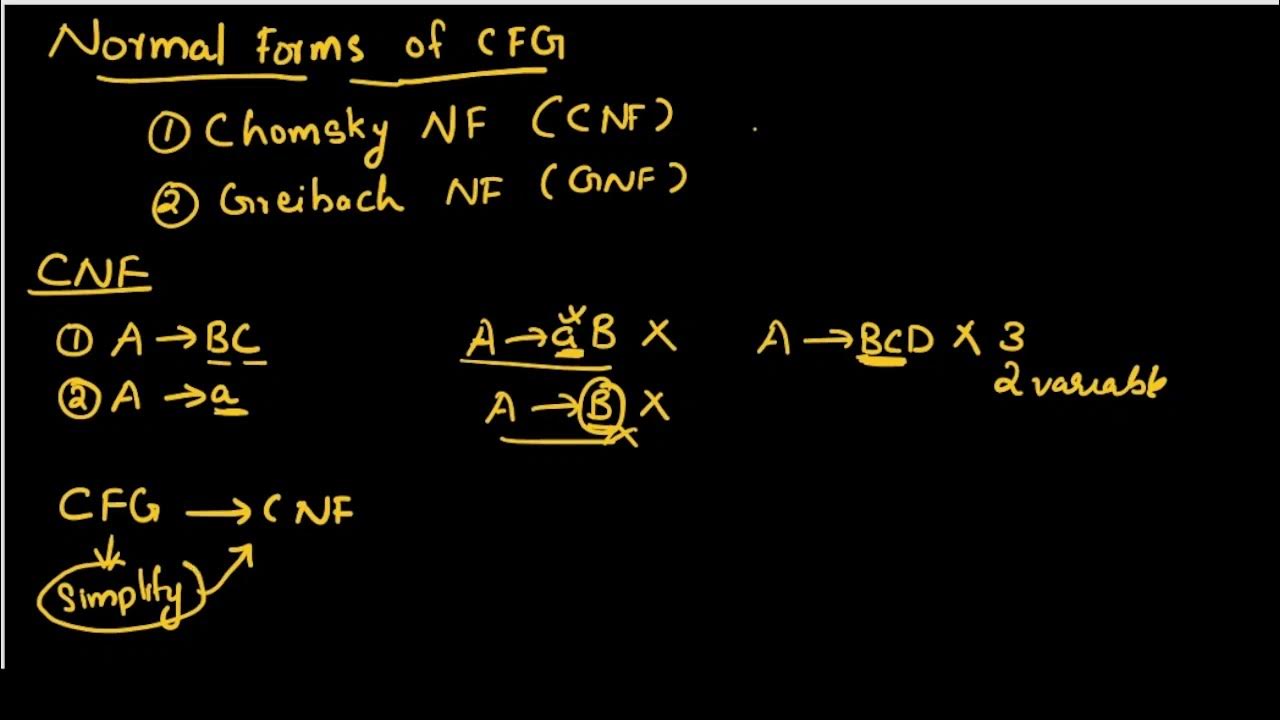 Normal Forms of CFG
① Chomsky NF (CNF)
② Greibach NF (GNF)
CNF
① A → BC
A → aB X
A → BCD X 3
2 variable
② A → a
A → B X
CFG → CNF
Simplify